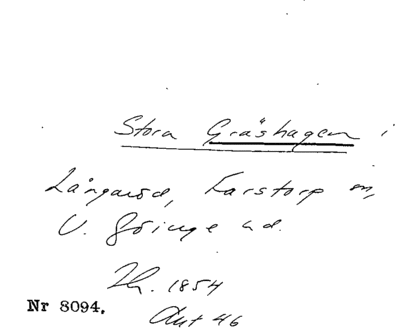 Stora Gräshagen i
Långaröd, Farstorp sn,
V. Göinge hd.
1854
Nr 8094.
Akt 46